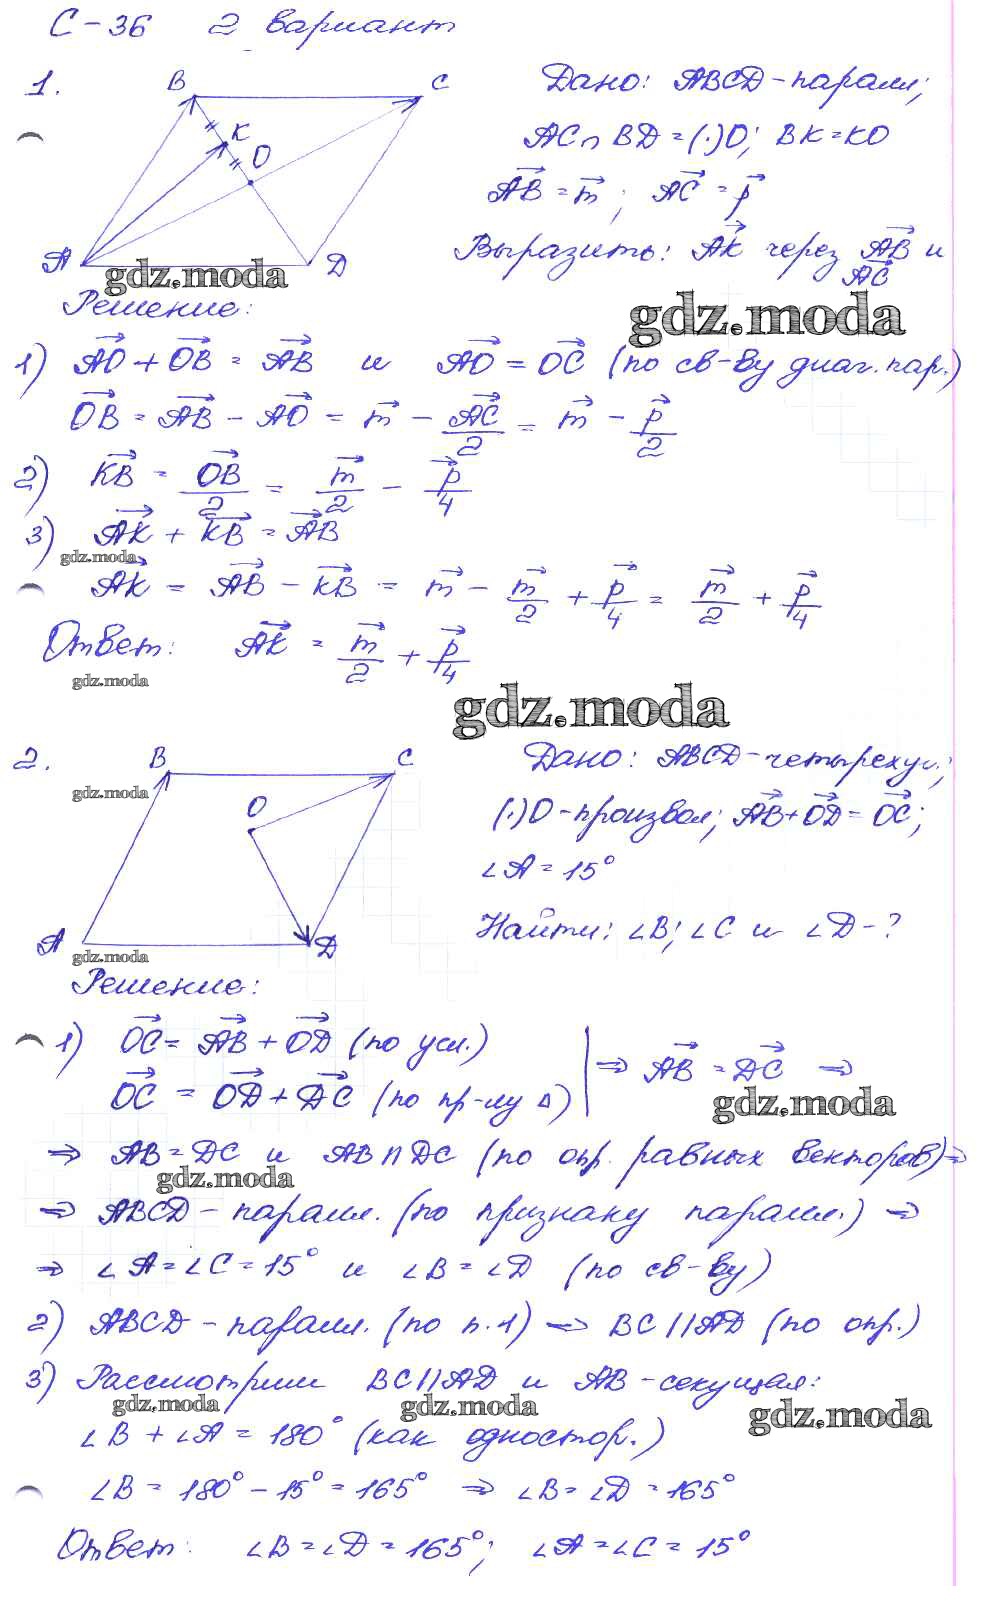 С-36 2 вариант
1.
B C
K
O
A D
Дано: ABCD-паралл;
AC∩BD=(·)O; BK=KO
AB→ = m→; AC→ = p→
Выразить: AK→ через AB→ и AC→
gdz.moda
gdz.moda
Решение:
1) AO→ + OB→ = AB→ и AO→ = OC→ (по св-ву диаг. пар.)
OB→ = AB→ - AO→ = m→ - AC→/2 = m→ - p→/2
2) KB→ = OB→/2 = m→/2 - p→/4
3) AK→ + KB→ = AB→
gdz.moda
AK→ = AB→ - KB→ = m→ - m→/2 + p→/4 = m→/2 + p→/4
Ответ: AK→ = m→/2 + p→/4
gdz.moda
gdz.moda
2.
B C
O
A D
gdz.moda
gdz.moda
Дано: ABCD-четырехуг.;
(·)O-произвол; AB→+OD→=OC→;
∠A=15°
Найти: ∠B; ∠C и ∠D-?
Решение:
1) OC→ = AB→ + OD→ (по усл.)
OC→ = OD→ + DC→ (по пр-лу Δ)
⇒ AB→ = DC→ ⇒
gdz.moda
⇒ AB=DC и AB∩DC (по опр. равных векторов)⇒
gdz.moda
⇒ ABCD-паралл. (по признаку паралл.) ⇒
⇒ ∠A=∠C=15° и ∠B=∠D (по св-ву)
2) ABCD-паралл. (по п.1) ⇒ BC||AD (по опр.)
3) Рассмотрим BC||AD и AB-секущая:
gdz.moda gdz.moda gdz.moda
∠B+∠A=180° (как одностор.)
∠B=180°-15°=165° ⇒ ∠B=∠D=165°
Ответ: ∠B=∠D=165°; ∠A=∠C=15°